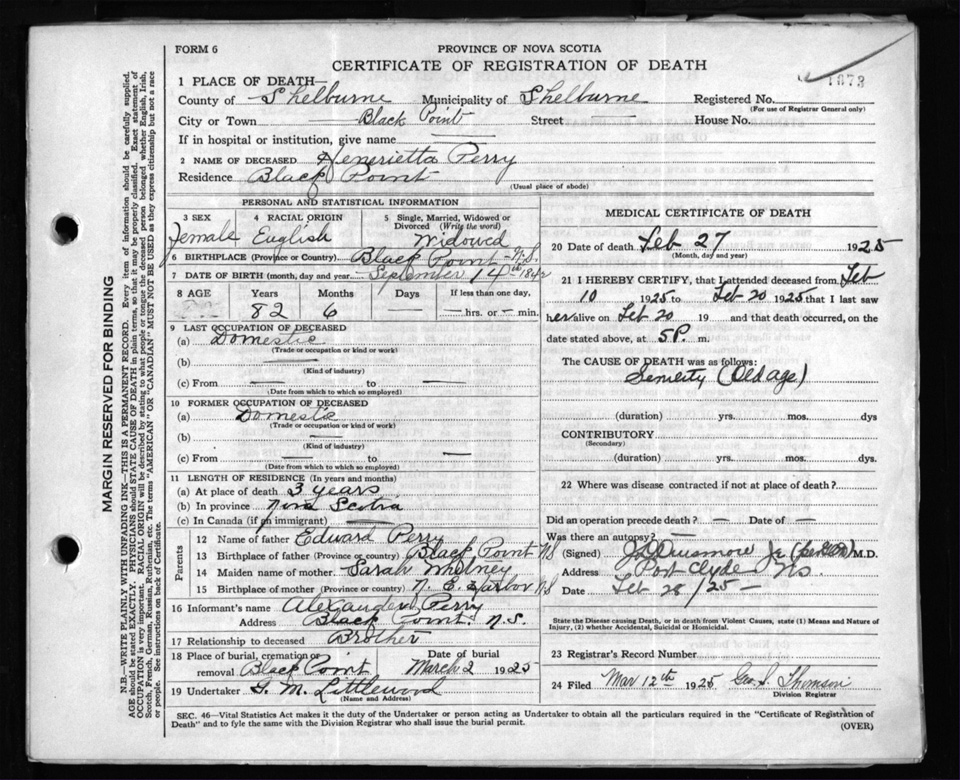 FORM 6
PROVINCE OF NOVA SCOTIA
CERTIFICATE OF REGISTRATION OF DEATH
1873
1 PLACE OF DEATH—
County of Shelburne Municipality of Shelburne Registered No.
(For use of Registrar General only)
City or Town Black Point Street — House No.
If in hospital or institution, give name
2 NAME OF DECEASED Henerietta Perry
Residence Black Point
(Usual place of abode)
PERSONAL AND STATISTICAL INFORMATION
3 SEX 4 RACIAL ORIGIN 5 Single, Married, Widowed or Divorced (Write the word)
Female English Widowed
6 BIRTHPLACE (Province or Country) Black Point N.S.
7 DATE OF BIRTH (month, day and year) September 14th 1842
8 AGE Years Months Days If less than one day,
82 6 — — hrs. or — min.
9 LAST OCCUPATION OF DECEASED
(a) Domestic
(Trade or occupation or kind or work)
(b) —
(Kind of industry)
(c) From — to —
(Date from which to which so employed)
10 FORMER OCCUPATION OF DECEASED
(a) Domestic
(Trade or occupation or kind of work)
(b) —
(Kind of industry)
(c) From — to —
(Date from which to which so employed)
11 LENGTH OF RESIDENCE (In years and months)
(a) At place of death 3 years
(b) In province Nova Scotia
(c) In Canada (if an immigrant) —
Parents
12 Name of father Edward Perry
13 Birthplace of father (Province or country) Black Point NS
14 Maiden name of mother Sarah Whitney
15 Birthplace of mother (Province or country) N. E. Harbor NS
16 Informant's name Alexander Perry
Address Black Point. N.S.
17 Relationship to deceased Brother
18 Place of burial, cremation or removal Black Point Date of burial March 2 1925
19 Undertaker G. M. Littlewood
(Name and Address)
MEDICAL CERTIFICATE OF DEATH
20 Date of death Feb 27 1925
(Month, day and year)
21 I HEREBY CERTIFY, that I attended deceased from Feb
10 1925 to Feb 20 1925 that I last saw
her alive on Feb 20 19 and that death occurred, on the
date stated above, at 5 P. m.
The CAUSE OF DEATH was as follows:
Senility (Old age)
(duration) yrs. mos. dys
CONTRIBUTORY
(Secondary)
(duration) yrs. mos. dys.
22 Where was disease contracted if not at place of death?
Did an operation precede death? — Date of —
Was there an autopsy? —
(Signed) Jr M.D.
Address Port Clyde NS
Date Feb 28/25
State the Disease causing Death, or in death from Violent Causes, state (1) Means and Nature of Injury, (2) whether Accidental, Suicidal or Homicidal.
23 Registrar's Record Number
24 Filed Mar 12th 1925 Geo. S. Thomson
Division Registrar
SEC. 46—Vital Statistics Act makes it the duty of the Undertaker or person acting as Undertaker to obtain all the particulars required in the "Certificate of Registration of
Death" and to fyle the same with the Division Registrar who shall issue the burial permit.
(OVER)
MARGIN RESERVED FOR BINDING
N.B.—WRITE PLAINLY WITH UNFADING INK—THIS IS A PERMANENT RECORD. Every item of information should be carefully supplied.
AGE should be stated EXACTLY. PHYSICIANS should STATE CAUSE OF DEATH in plain terms, so that it may be properly classified. Exact statement of
OCCUPATION is very important. RACIAL ORIGIN will be described by stating to what people or tongue the deceased person belonged whether English, Irish,
Scotch, French, German, Russian, Ruthenian, etc. The terms "AMERICAN" or "CANADIAN" MUST NOT BE USED as they express citizenship but not a race
or people. See instructions on back of Certificate.